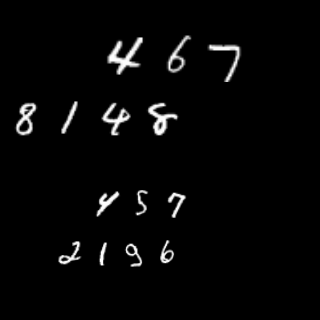 4 6 7
8 1 4 8
4 5 7
2 1 9 6